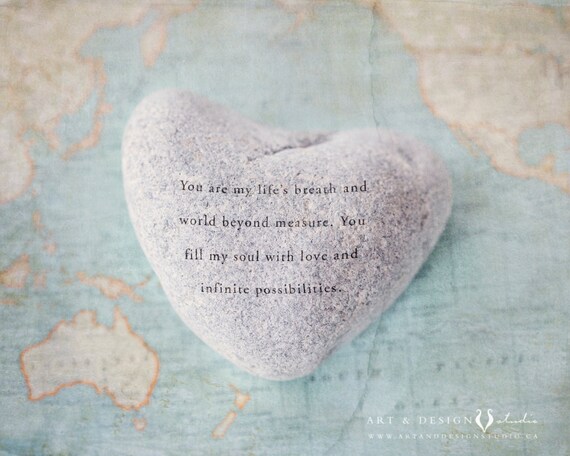 You are my life's breath and
world beyond measure. You
fill my soul with love and
infinite possibilities.
ART & DESIGN studio
WWW.ARTANDDESIGNSTUDIO.CA